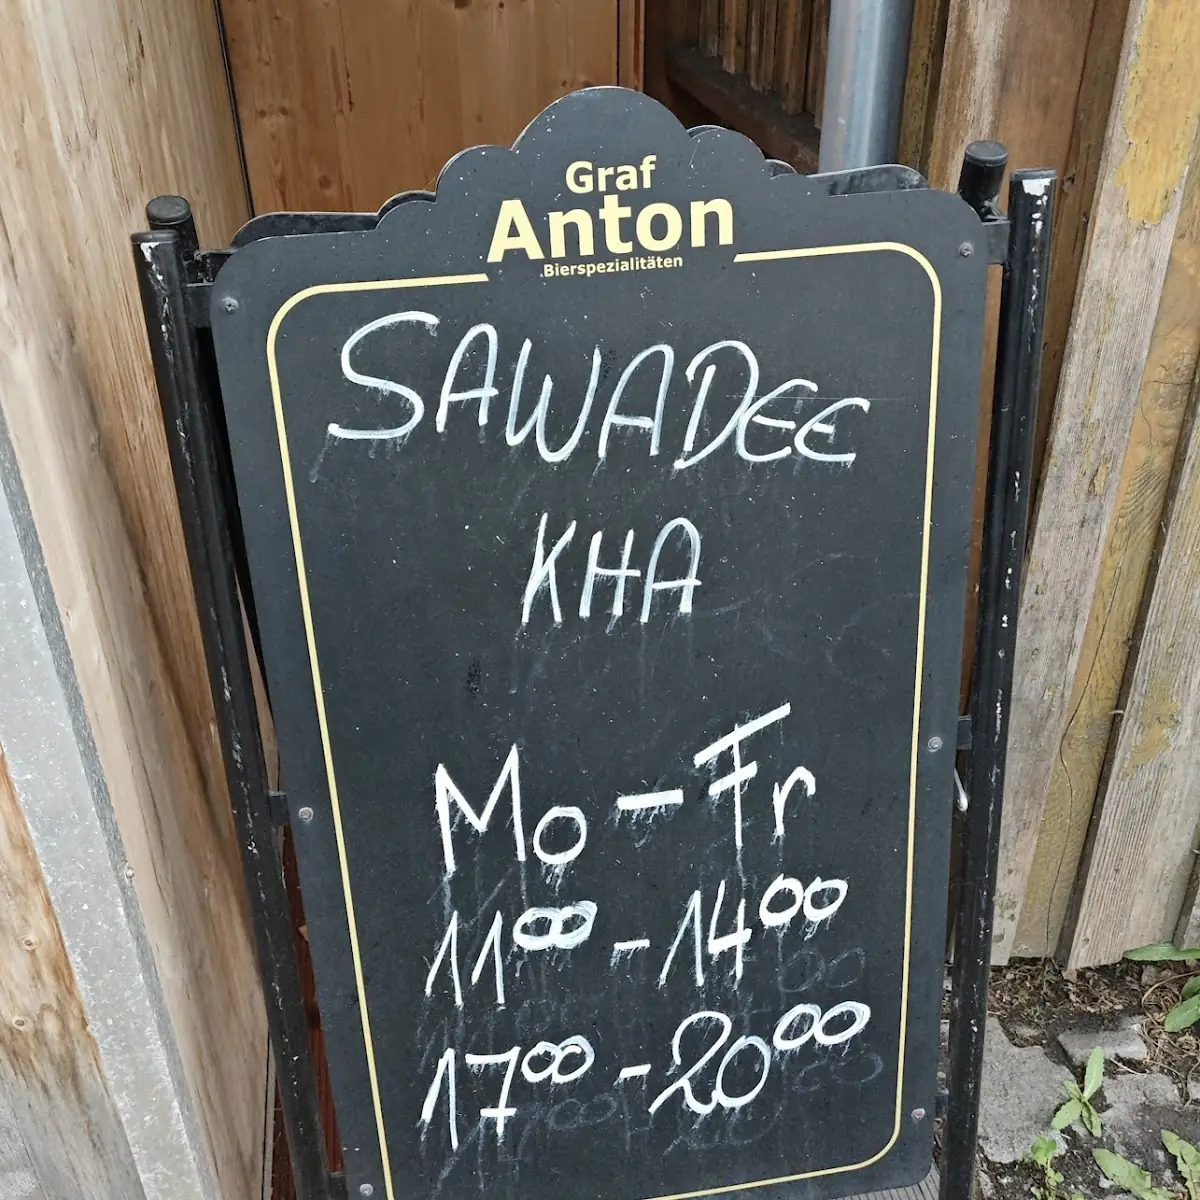 Graf
Anton
Bierspezialitäten
SAWADEE
KHA
Mo - Fr
11⁰⁰ - 14⁰⁰
17⁰⁰ - 20⁰⁰